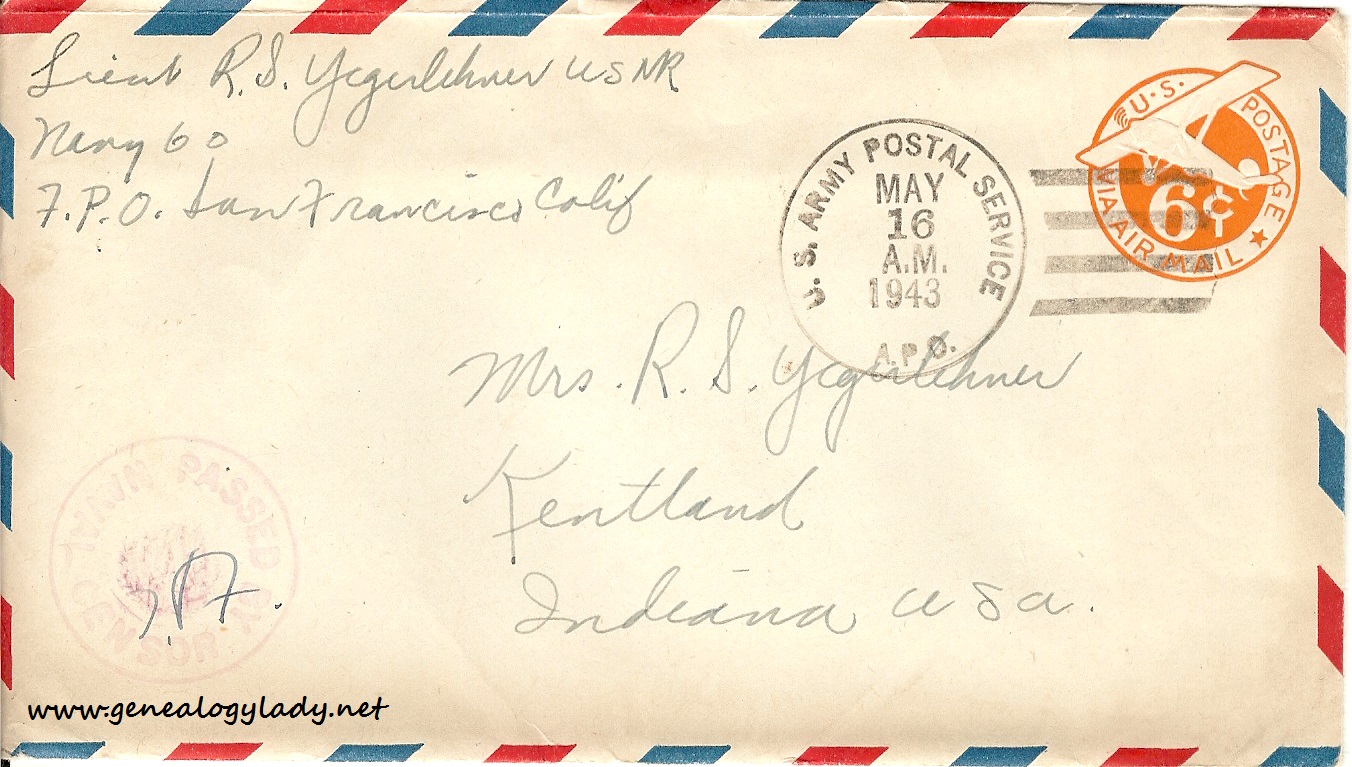 Lieut R.S. Yegerlehner USNR
Navy 60
F.P.O. San Francisco Calif
U.S. POSTAGE
VIA AIR MAIL
6¢
U.S. ARMY POSTAL SERVICE
MAY
16
A.M.
1943
A.P.O.
Mrs. R.S. Yegerlehner
Kentland
Indiana USA.
PASSED BY
NAVAL CENSOR
www.genealogylady.net